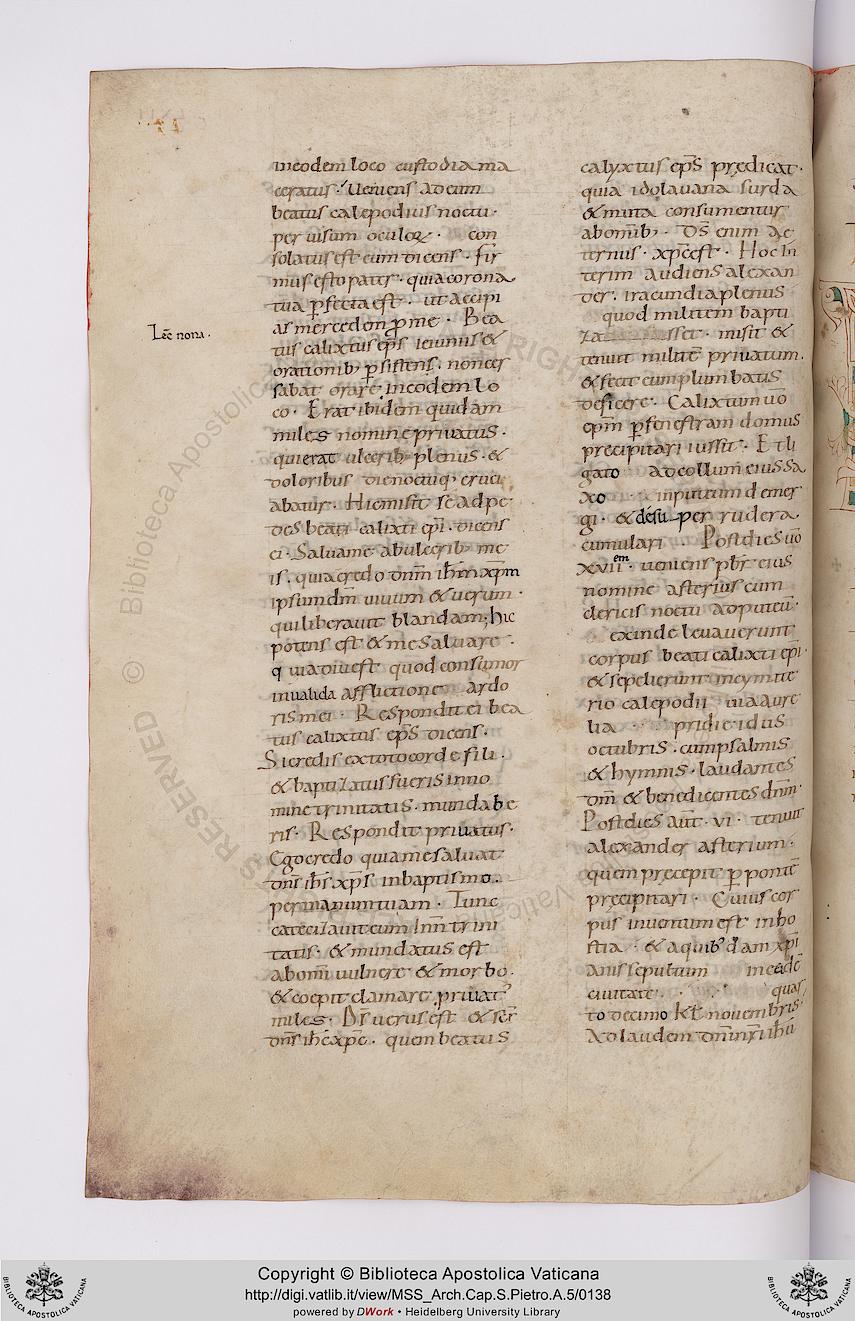 in eodem loco custodia ma
ceratus. Veniens ad eum
beatus calepodius noctu.
per uisum oculoꝝ. con
solatus est eum dicens. fir
mus esto pater. quia corona
tua ꝑfecta est. ut accipi
as mercedem ꝓ me. Bea
Lec̄ nona.
tus calixtus ep̄s ieiuniis &
orationib; ꝑsistens. non ces
sabat orare in eodem lo
co. Erat ibidem quidam
miles nomine priuatus.
qui erat ulcerib; plenus. &
doloribus die noctuq; cruci
abatur. Hic misit se ad pe
des beati calixti ep̄i. dicens
ei. Salua me ab ulcerib; me
is. quia credo dn̄m ih̄m xp̄m
ipsum dm̄ uiuum & uerum.
qui liberauit blandam; hic
potens est & me saluare.
quia diu est quod consumor
inualida afflictione ardo
ris mei. Respondit ei bea
tus calixtus ep̄s dicens.
Si credis ex toto corde fili.
& baptizatus fueris in no
mine trinitatis. mundabe
ris. Respondit priuatus.
Ego credo quia me saluat
dn̄s ih̄s xp̄s in baptismo.
per manum tuam. Tunc
catecizauit eum In n̄ trini
tatis. & mundatus est
ab om̄i uulnere & morbo.
& coepit clamare priuat᾽
miles. Ds̄ uerus est & sc̄s
dn̄s ih̄c xp̄c. quem beatus
calyxtus ep̄s predicat.
quia idola uana surda
& muta consumentur
ab omīb;. Ds̄ enim ae
ternus. xp̄c est. Hoc in
terim audiens alexan
der. iracundia plenus
quod militem bapti
zauisset. misit &
tenuit milite᷒ priuatum.
& fecit eum plumbatis
deficere. Calixtum uō
ep̄m ꝑ fenestram domus
precipitari iussit. Et li
gato ad collum eius sa
xo in puteum demer
gi. & desuper rudera
cumulari. Post dies uō
xvii em. ueniens pb̄r eius
nomine asterius cum
clericis noctu ad puteū.
exinde leuauerunt
corpus beati calixti ep̄i.
& sepelierunt in cymite
rio calepodii uia aure
lia pridie idus
octubris. cum psalmis
& hymnis. laudantes
dm̄ & benedicentes dn̄m.
Post dies aut̄. vi. tenuit
alexander asterium.
quem precepit ꝑ pontē
precipitari. Cuius cor
pus inuentum est in ho
stia. & a quib᾽dam xp̄i
anis sepultum in eadē
ciuitate. quar
to decimo kl̄ nouembris.
Ad laudem dn̄i nr̄i ih̄ū
Copyright © Biblioteca Apostolica Vaticana
http://digi.vatlib.it/view/MSS_Arch.Cap.S.Pietro.A.5/0138
powered by DWork • Heidelberg University Library